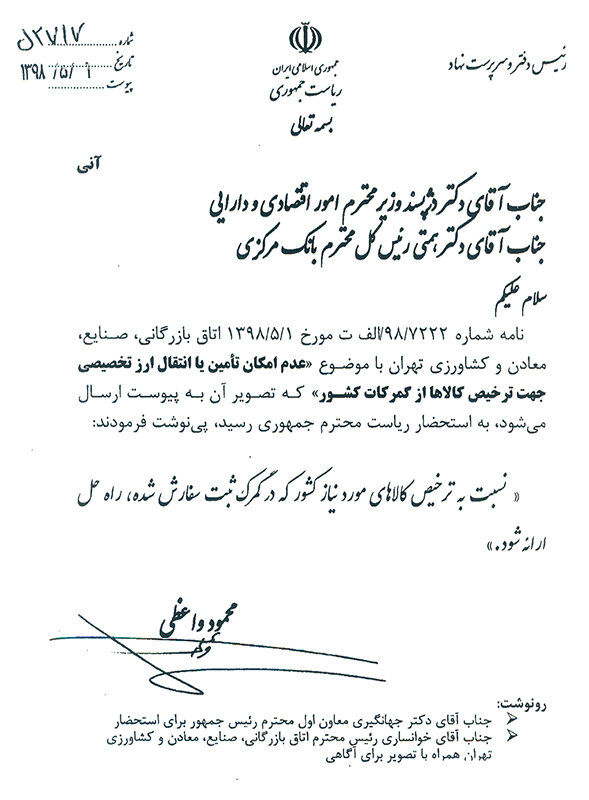 رئیس دفتر و سرپرست نهاد
جمهوری اسلامی ایران
ریاست جمهوری
بسمه تعالی
شماره
تاریخ ۱۳۹۸/۵/
پیوست
آنی
جناب آقای دکتر دژپسند وزیر محترم امور اقتصادی و دارایی
جناب آقای دکتر همتی رئیس کل محترم بانک مرکزی
سلام علیکم
نامه شماره ۹۸/۷۲۲۲/الف ت مورخ ۱۳۹۸/۵/۱ اتاق بازرگانی، صنایع،
معادن و کشاورزی تهران با موضوع «عدم امکان تأمین یا انتقال ارز تخصیصی
جهت ترخیص کالاها از گمرکات کشور» که تصویر آن به پیوست ارسال
می‌شود، به استحضار ریاست محترم جمهوری رسید، پی‌نوشت فرمودند:
« نسبت به ترخیص کالاهای مورد نیاز کشور که در گمرک ثبت سفارش شده، راه حل
ارائه شود.»
محمود واعظی
رونوشت:
جناب آقای دکتر جهانگیری معاون اول محترم رئیس جمهور برای استحضار
جناب آقای خوانساری رئیس محترم اتاق بازرگانی، صنایع، معادن و کشاورزی
تهران همراه با تصویر برای آگاهی